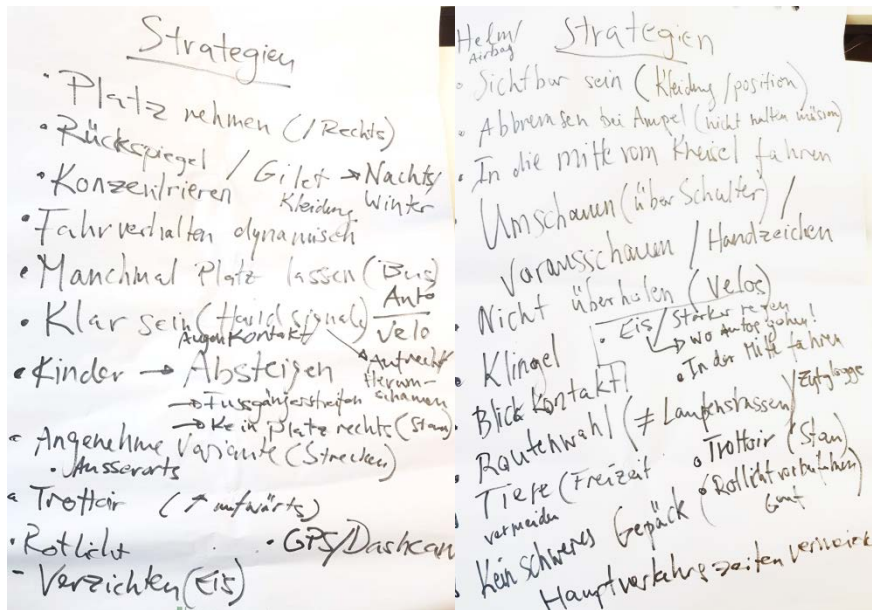 Strategien
• Platz nehmen (/Rechts)
• Rückspiegel / Gilet → Nachts/
Kleidung Winter
• Konzentrieren
• Fahrverhalten dynamisch
• Manchmal Platz lassen (Bus)
• Klar sein (Hand signale) Auto
Velo
Augenkontakt
Aufrecht
Herum-
schauen
• Kinder → Absteigen
→ Fussgängerstreifen
→ Kein Platz rechts (Stau)
• Angenehme Variante (Strecken)
• Ausserorts
• Trottoir (↑ aufwärts)
• Rotlicht • GPS/Dashcam
- Verzichten (Eis)
Helm/
Airbag
Strategien
• Sichtbar sein (Kleidung/position)
• Abbremsen bei Ampel (nicht halten müssen)
• In die mitte vom Kreisel fahren
Umschauen (über Schulter) /
Vorausschauen / Handzeichen
• Nicht überholen (Velos)
• Eis / Starker regen
→ wo Autos gehen!
• In der Mitte fahren
• Klingel
• Blick Kontakt!
• Routenwahl (≠ Laufenstrassen) /
• Trottoir (Stau)
Tiere (Freizeit
vermeiden
• Rotlicht
Kein schweres Gepäck
Hauptverkehrszeiten